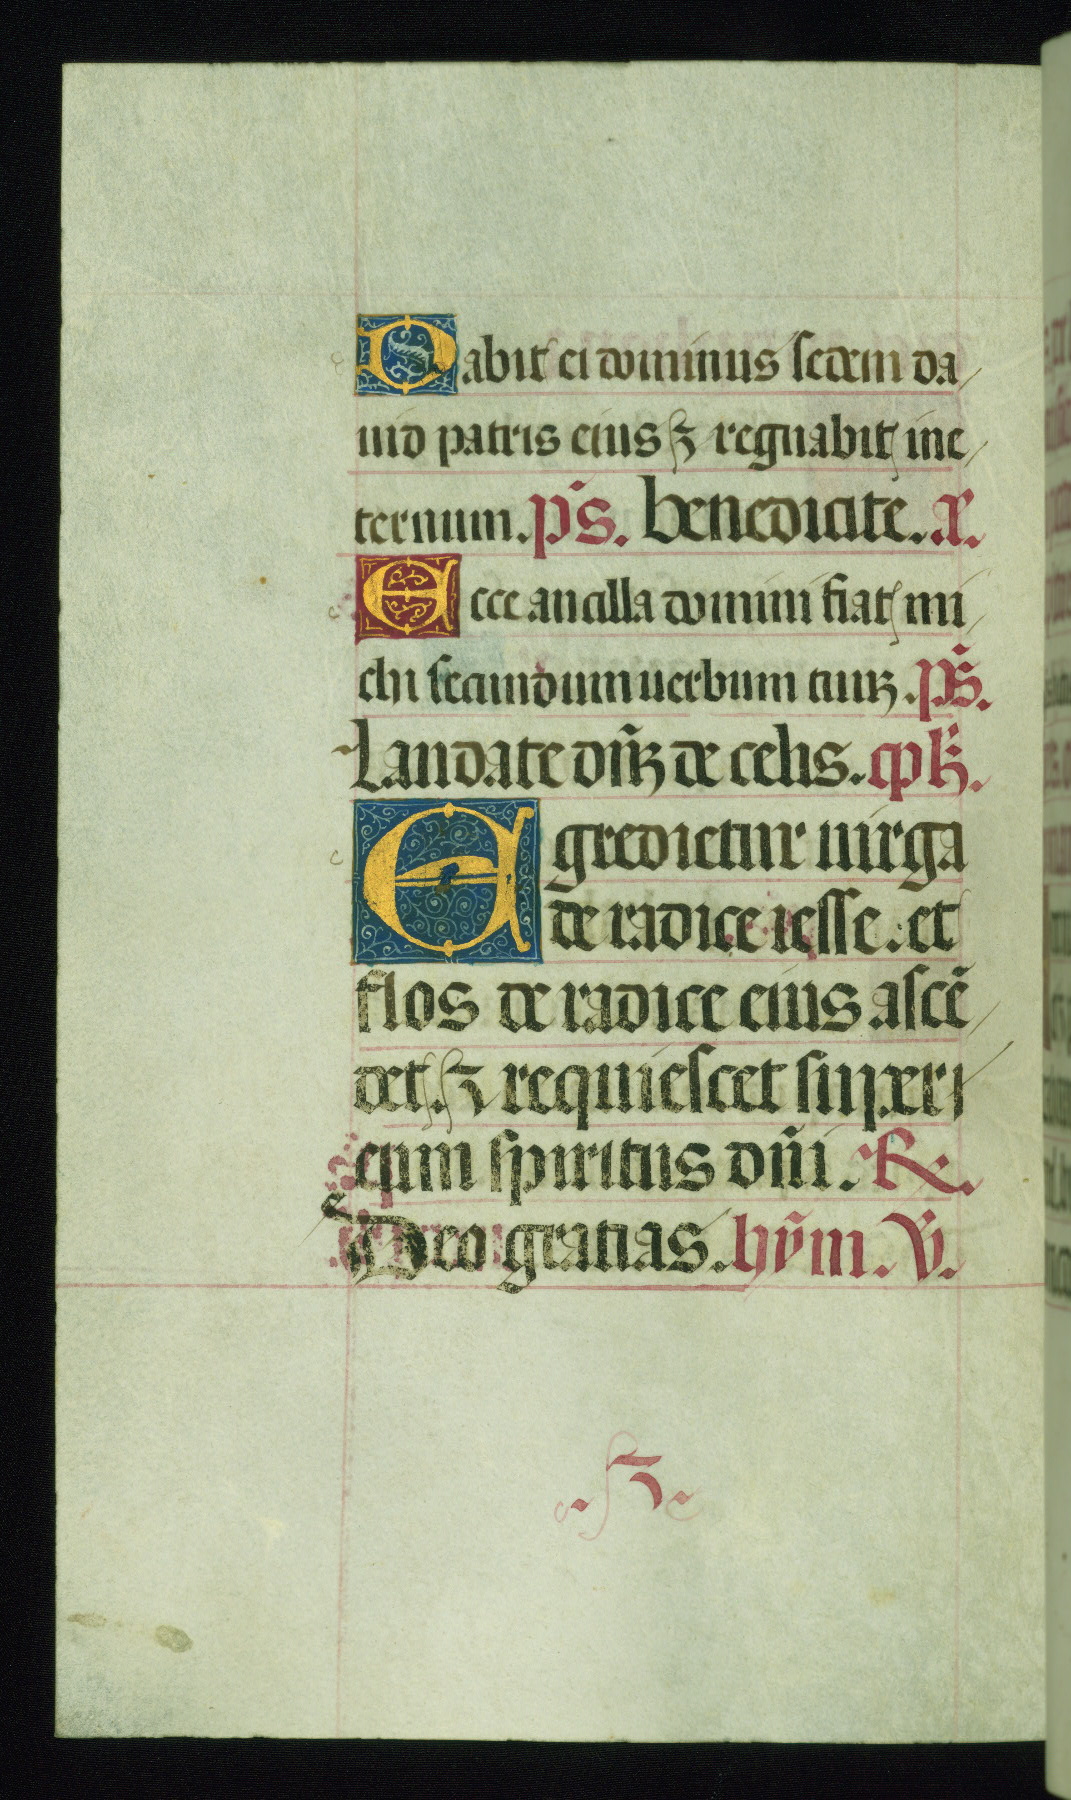 Dabit ei dominus sedem da
uid patris eius ⁊ regnabit ine
ternum. p̄s. benedicite. a͞.
Ecce ancilla domini fiat mi
chi secundum uerbum tuuꝫ. p̄s.
Laudate dn̄ꝫ de celis. cpl̄.
Egredietur uirga
de radice iesse. et
flos de radice eius ascē
det. ⁊ requiescet sup̱ er
eum spiritus dn̄i. ℟.
Deo gratias. hȳm. ℣.
.⁊.